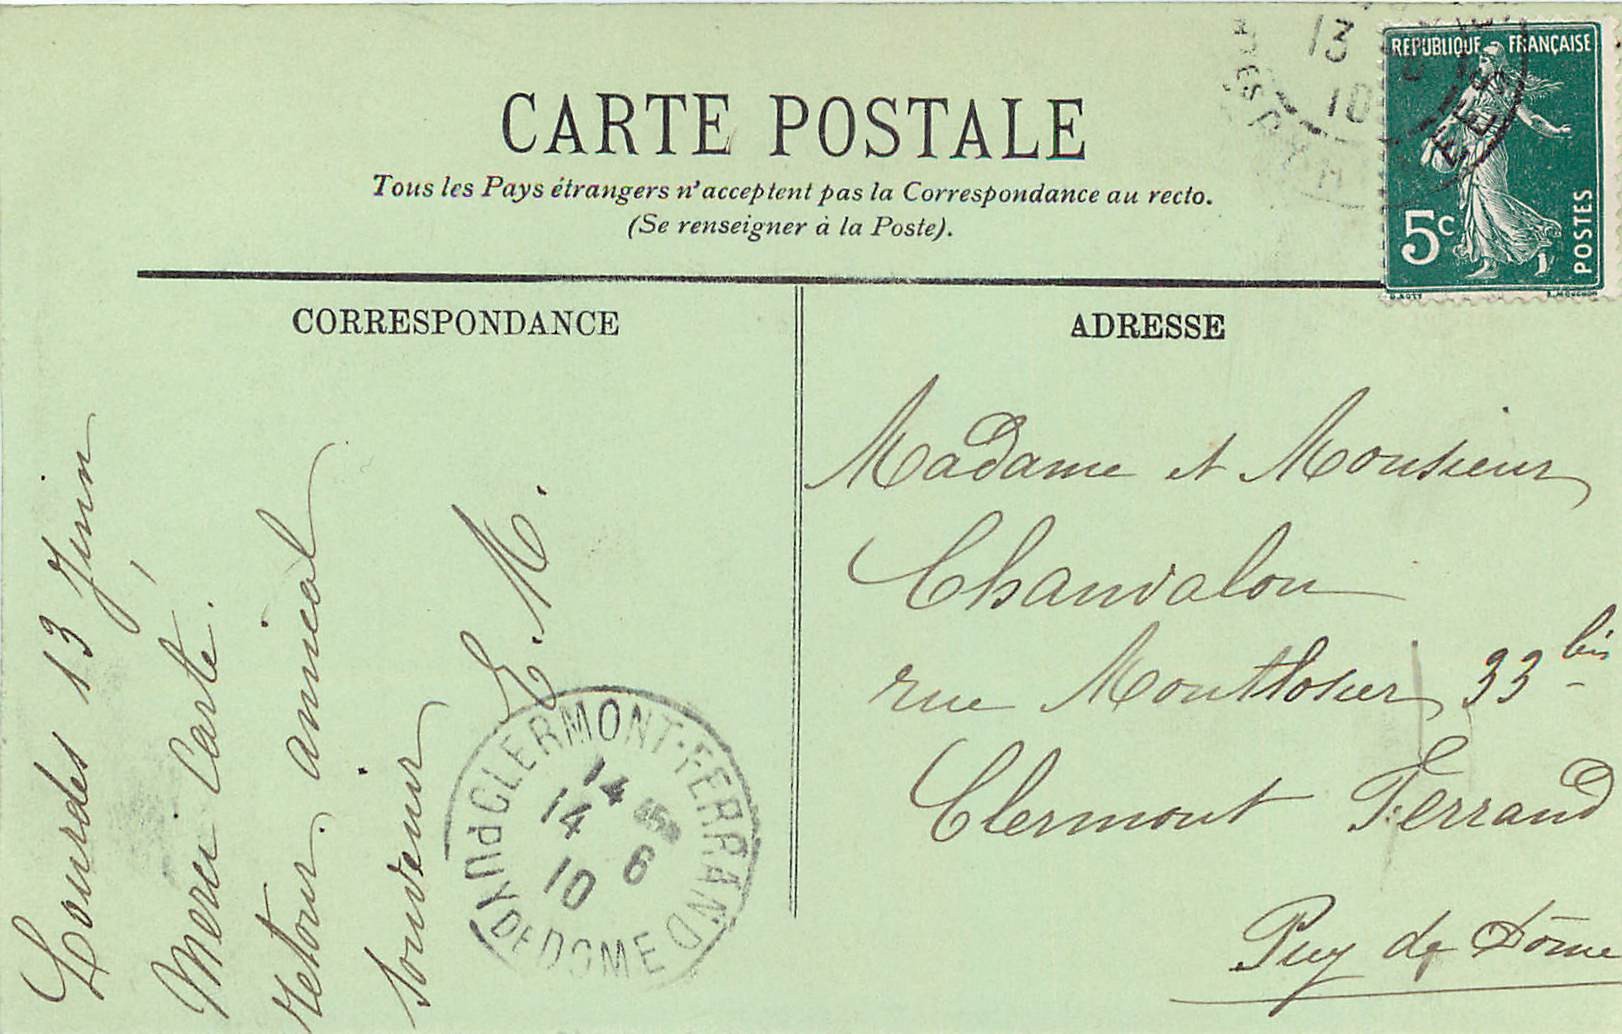 CARTE POSTALE
Tous les Pays étrangers n'acceptent pas la Correspondance au recto.
(Se renseigner à la Poste).
REPUBLIQUE FRANÇAISE
5c
POSTES
13
10
CORRESPONDANCE
ADRESSE
Lourdes 13 Juin
Merci Carte.
Retour amical
souvenir
E. M.
CLERMONT-FERRAND
PUY DE DOME
14
14 6
10
Madame et Monsieur
Chanvalon
rue Montlosier 33 bis
Clermont Ferrand
Puy de Dôme